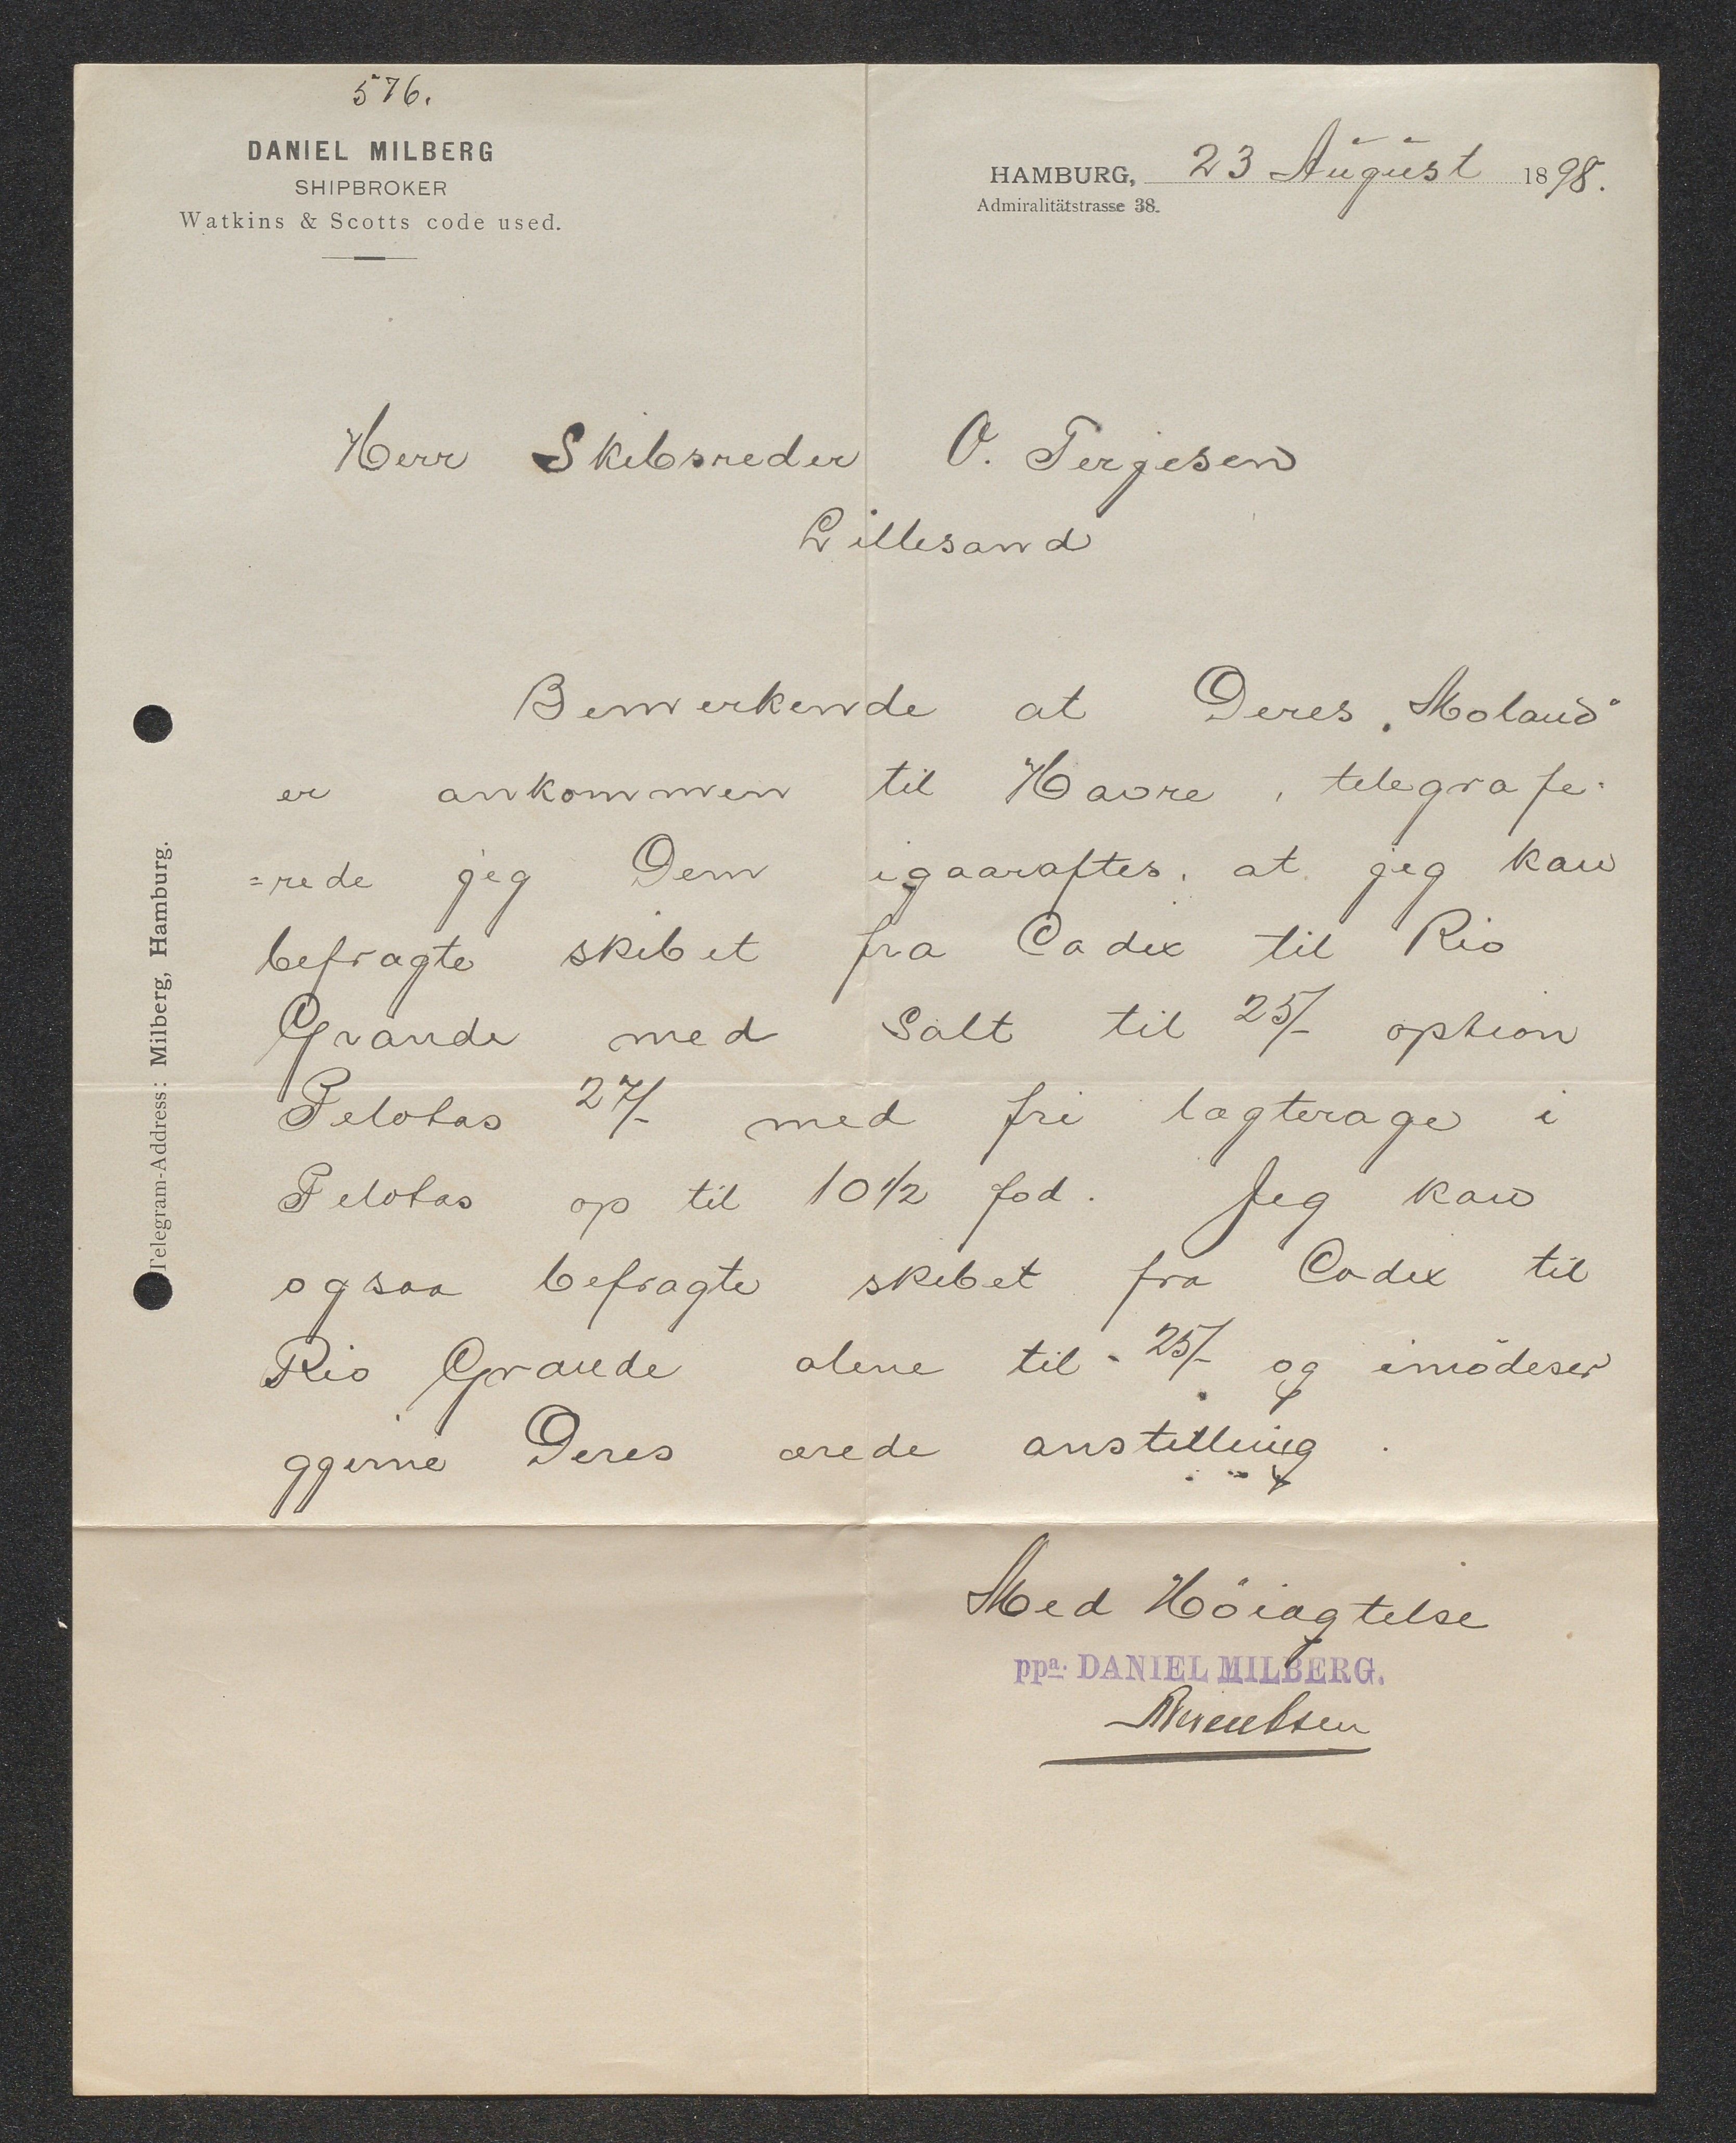 576.
DANIEL MILBERG
SHIPBROKER
Watkins & Scotts code used.
HAMBURG, 23 August 1898.
Admiralitätstrasse 38.
Herr Skibsreder O. Terjesen
Lillesand
Bemerkende at Deres „Moland"
er ankommen til Havre, telegrafe-
=rede jeg Dem igaaraftes, at jeg kan
befragte skibet fra Cadix til Rio
Grande med Salt til 25/- option
Pelotas 27/- med fri lagterage i
Pelotas op til 10 1/2 fod. Jeg kan
ogsaa befragte skibet fra Cadix til
Rio Grande alene til 25/- og imödeser
gjerne Deres ærede anstilling.
Med Höiagtelse
ppa. DANIEL MILBERG.
Telegram-Address: Milberg, Hamburg.